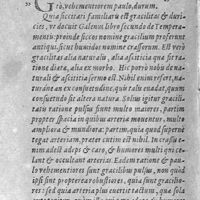 tio, vehementiorem paulo, durum.
Quia siccitati familiaris est gracilitas & duri
cies, ut docuit Galenus libro secundo de Tempera=
mentis: proinde siccos nomine gracilium proferunt
antiqui, sicut humidos nomine crassorum. Est verò
gracilitas alia naturalis, alia ascititia quæ fit ra
tione diætæ, aliave morbo. Hic porrò nõ de natu-
rali & ascititia sermo est. Nihil enim refert, na
turáne an ex consuetudine res ulla eadat, quum
consuetudo sit altera natura. Solius igitur gracili
tatis ratione pulsus sunt multo maiores, partim
propter spacia in quibus arteriæ moventur, multo
ampliora & mundiora: partim, quia quod superné
tegat arteriam, præter cutim est nihil. In crassis e=
nim adest adeps & caro, & humores multi qui ce
lant & occultant arterias. Eadem ratione & pau
lo vehementiores sunt gracilibus pulsus, non quòd
ipsi sint propterea robustiores, quia sunt gracilio=
res: sed quia arteria plus enerit tactum, quæ sola